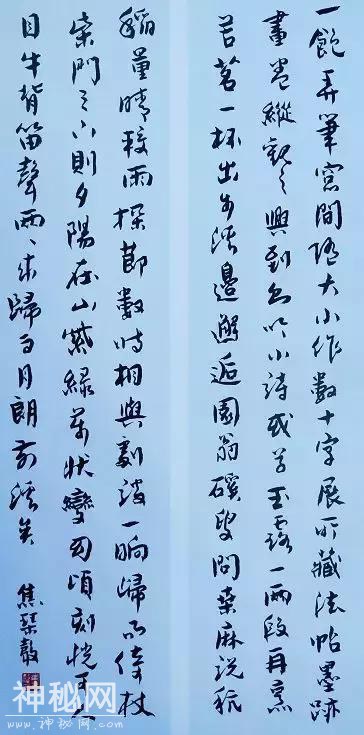 一飽弄筆窗間隨大小作數十字展所藏法帖墨跡
畫卷縱觀之興到即吟小詩或草玉露一兩段再烹
苦茗一杯出步溪邊邂逅園翁磎叟問桑麻說秔
稻量晴校雨探節數時相與劇談一晌歸而倚杖
柴門之下則夕陽在山紫綠萬狀變幻頃刻恍可人
目牛背笛聲兩〻來歸而月朗前溪矣
焦琴
神秘网
WWW.SHENMI.CN